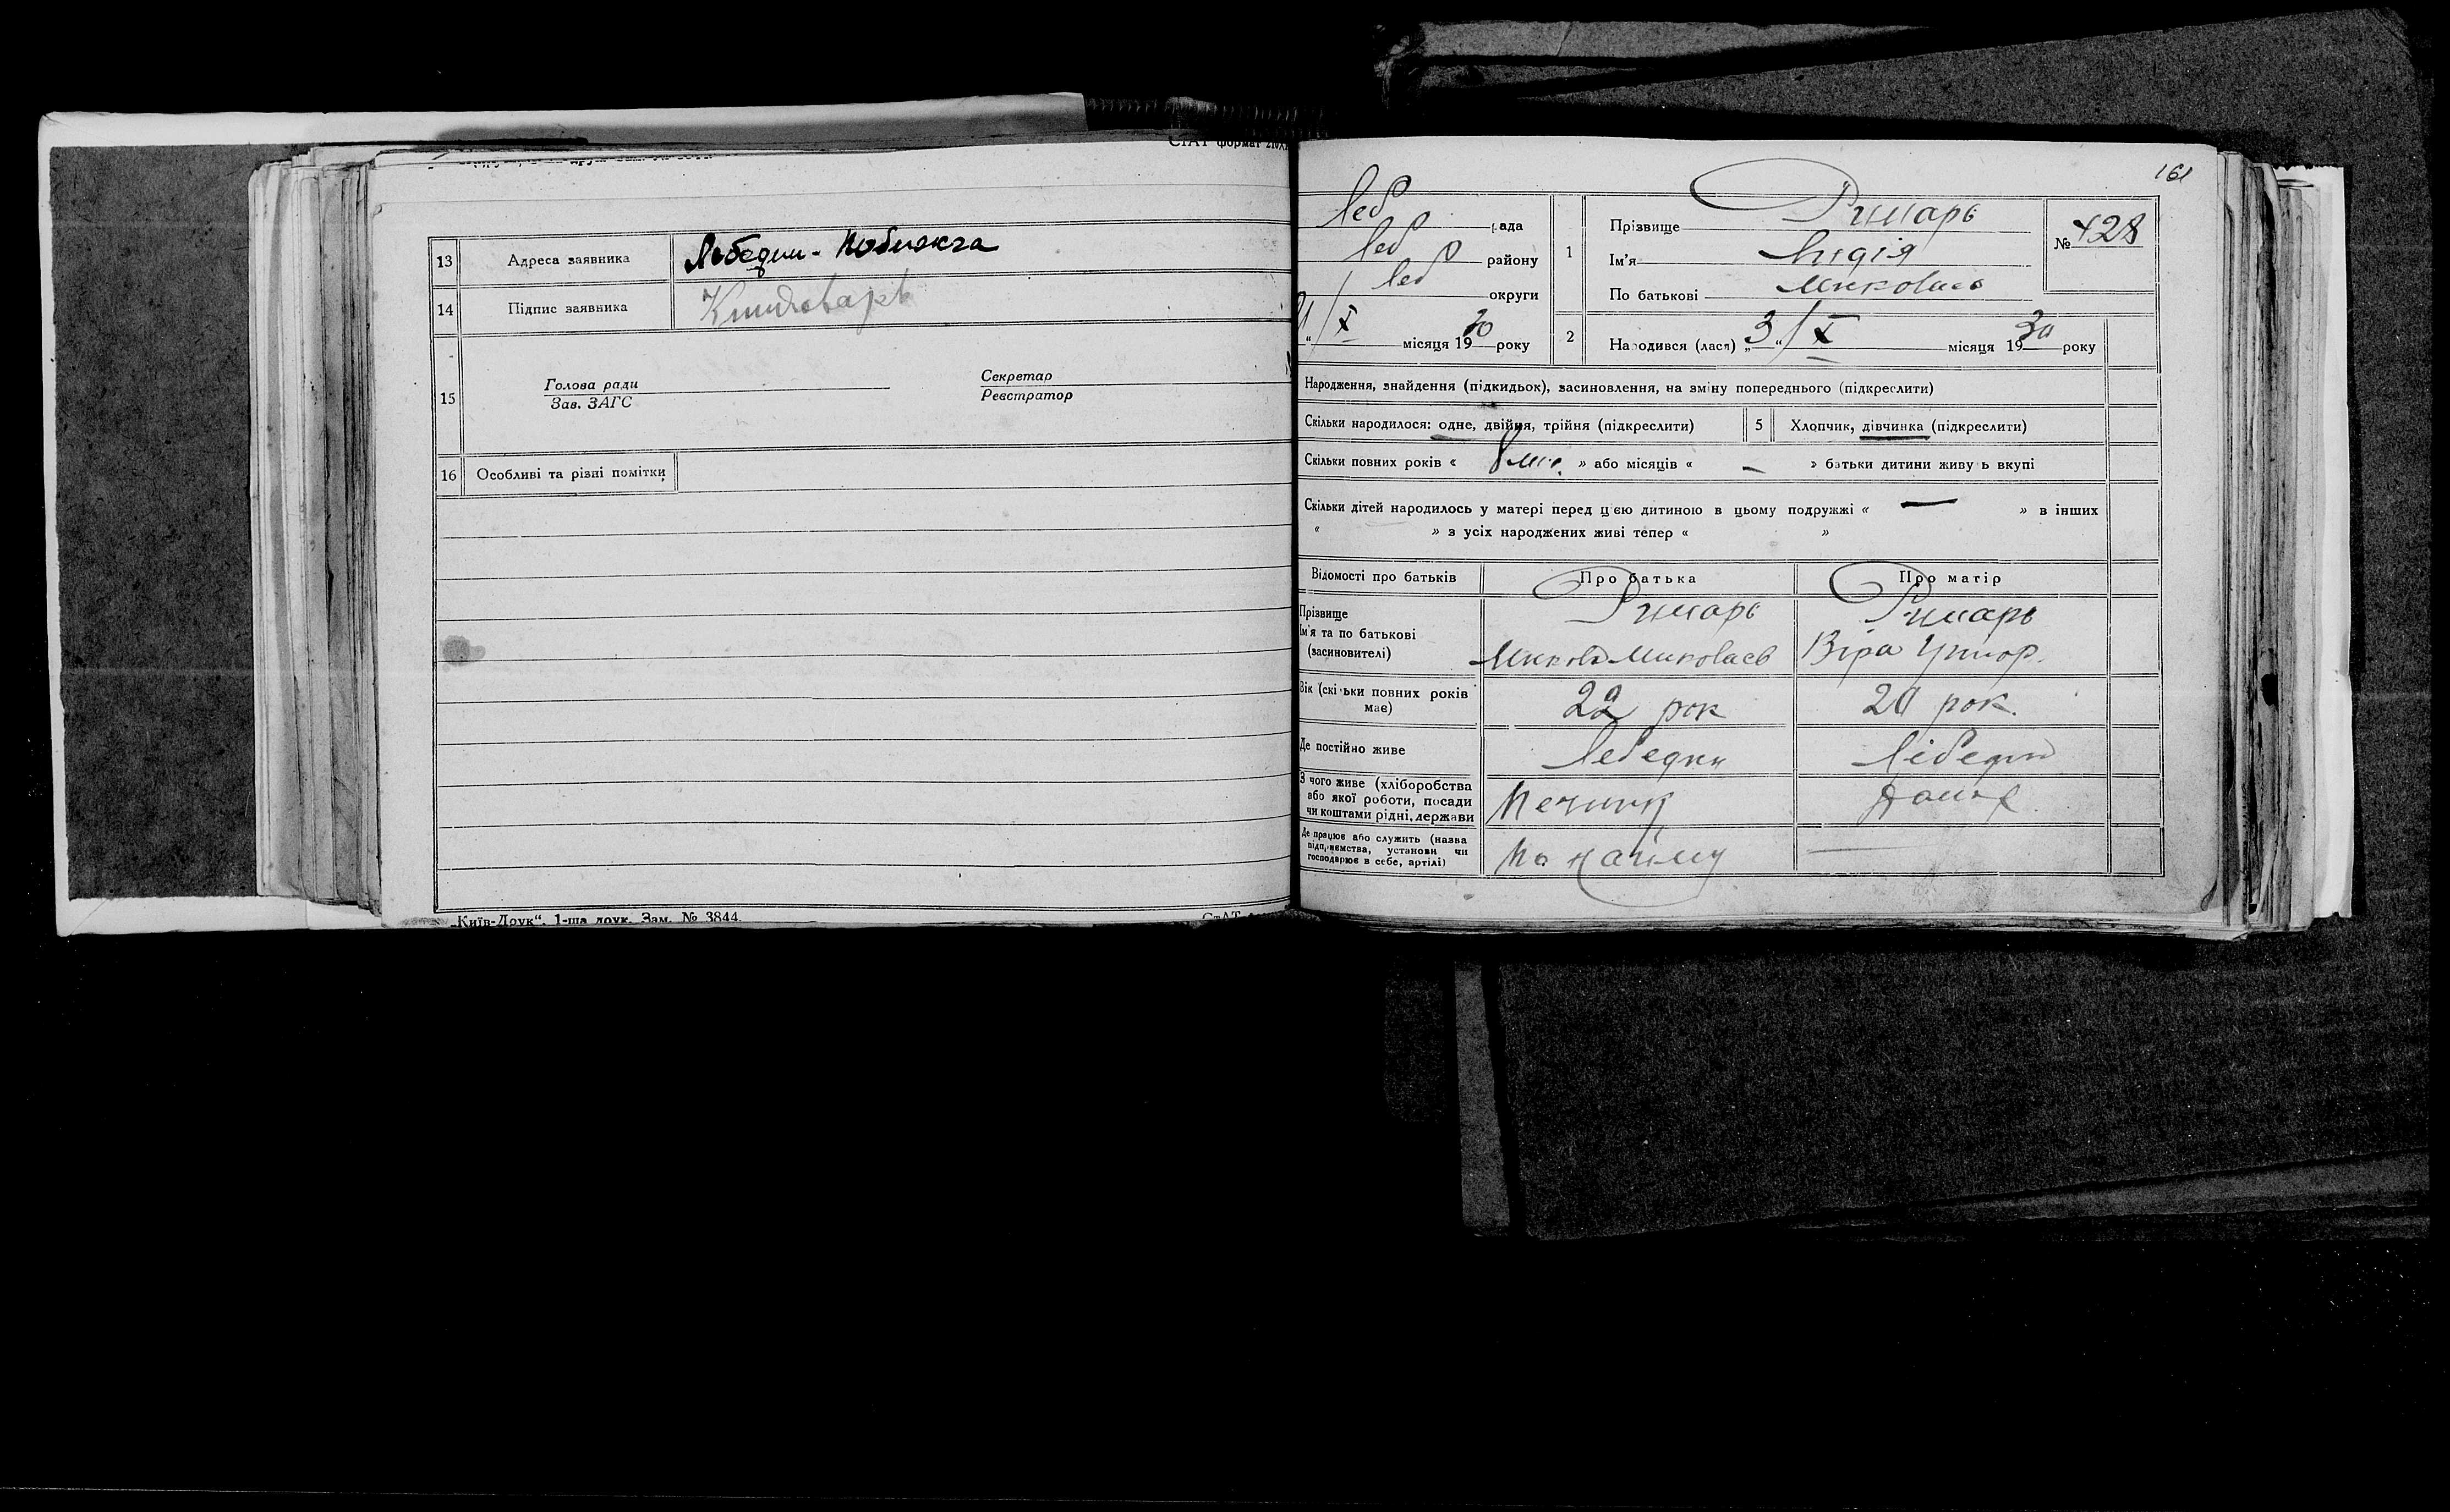 СТАТ формат
13 Адреса заявника Лебедин-
14 Підпис заявника
15 Голова ради Секретар
Зав. ЗАГС Реєстратор
16 Особливі та різні помітки
„Київ-Друк“. 1-ша друк. Зам. № 3844.
161
Леб рада
Леб району
Леб округи
/X місяця 1930 року
1 Прізвище Римарь
Ім'я Лидія
По батькові Миколаєв
№ 428
2 Народився (лася) „3“ /X місяця 1930 року
Народження, знайдення (підкидьок), засиновлення, на зміну попереднього (підкреслити)
Скільки народилося: одне, двійня, трійня (підкреслити) 5 Хлопчик, дівчинка (підкреслити)
Скільки повних років « » або місяців « — » батьки дитини живуть вкупі
Скільки дітей народилось у матері перед цією дитиною в цьому подружжі « — » в інших
« » з усіх народжених живі тепер « »
Відомості про батьків Про батька Про матір
Прізвище Римарь Римарь
Ім'я та по батькові
(засновителі) Микола Миколаєв Віра
Вік (скільки повних років
має) 22 рок 20 рок.
Де постійно живе Лебедин Лебедин
З чого живе (хліборобства
або якої роботи, посади
чи коштами рідні, держави
Де працює або служить (назва
підприємства, установи чи
господарює в себе, артілі) По найму —